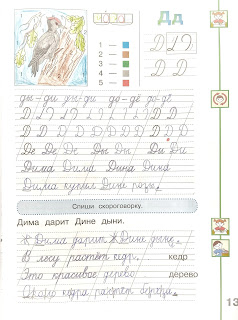 Д д
1 –
2 –
3 –
4 –
5 –
Д Д Д
Д Д
ды – ди ды – ди до – дё до – дё
Д Д Д Д Д Д Д Д Д Д
Д Д Д Д Д Д Д Д Д Д Д
До До До Ды Ды Ди Ди
Дима Дима Дина Дина
Дима купил Дине розы.
Спиши скороговорку.
Дима дарит Дине дыни.
Дима дарит Дине дыни.
В лесу растёт кедр. кедр
Это красивое дерево. дерево
Около кедра растёт берёза.
13